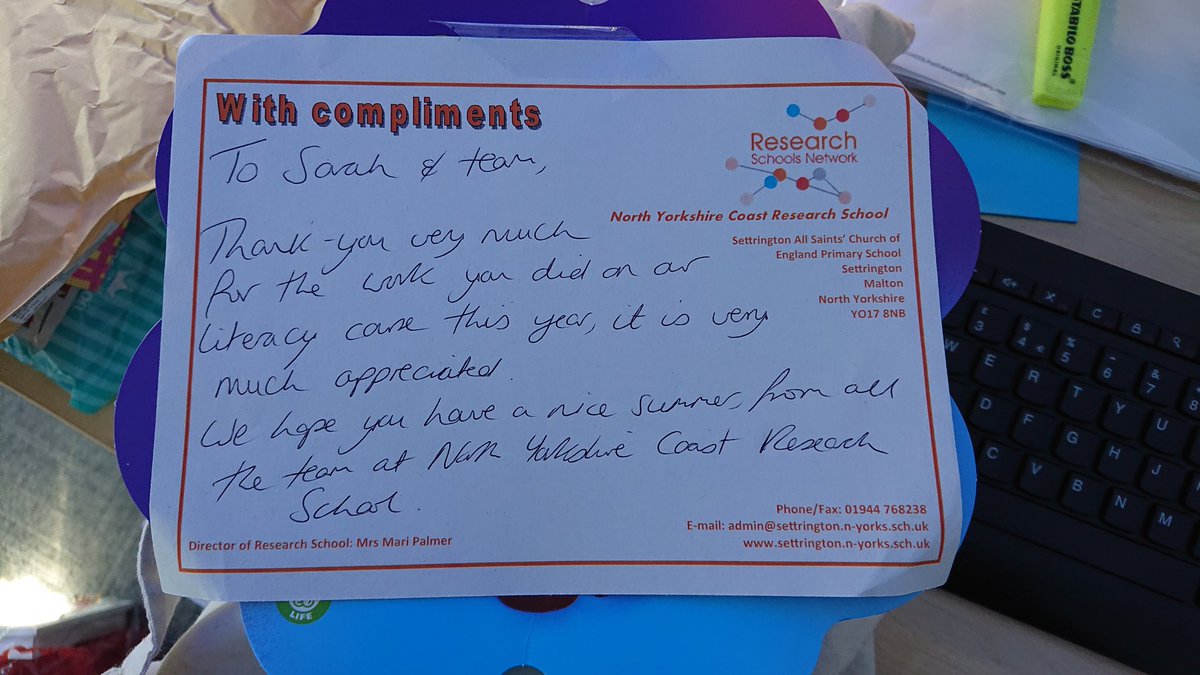 With compliments
Research
Schools Network
To Sarah & team,
North Yorkshire Coast Research School
Settrington All Saints' Church of
England Primary School
Settrington
Malton
North Yorkshire
YO17 8NB
Thank-you very much
for the work you did on our
literacy course this year, it is very
much appreciated.
We hope you have a nice summer, from all
the team at North Yorkshire Coast Research
School.
Phone/Fax: 01944 768238
E-mail: admin@settrington.n-yorks.sch.uk
www.settrington.n-yorks.sch.uk
Director of Research School: Mrs Mari Palmer
LIFE
STABILO BOSS
ORIGINAL
£ 3
$ 4 €
% 5
^ 6
& 7
W E R T Y U
D F G H J
C V B N M